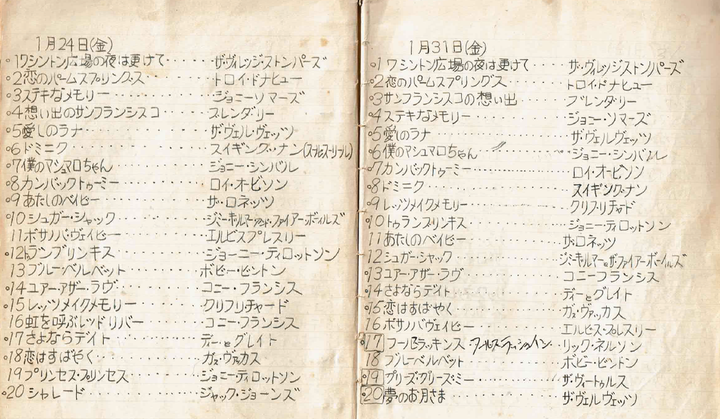 1月24日(金)
○1ワシントン広場の夜は更けて・・・・ザ・ヴィレッジ・ストンパーズ
○2恋のパームスプリングス・・・・・・トロイ・ドナヒュー
○3ステキなメモリー・・・・・・・・・ジョニーソマーズ
○4想い出のサンフランシスコ・・・・・ブレンダリー
○5愛しのラナ・・・・・・・・・・・・ザ・ヴェルヴェッツ
○6ドミニク・・・・・・・・・・・・・スイギング・ナン
○7僕のマシュマロちゃん・・・・・・・ジョニー・シンバル
○8カンバックトゥーミー・・・・・・・ロイ・オービソン
○9あたしのベイビー・・・・・・・・・ザ・ロネッツ
○10シュガー・シャック・・・・・・・ジミーキルマーアンド・ファイアーボールズ
11ボサノバ・ヴェイビー・・・・・・・エルビスプレスリー
○12トランプリンキス・・・・・・・・ジョーニー・ティロットソン
13ブルーベルベット・・・・・・・・・ボビー・ビントン
○14ユアー・アザー・ラヴ・・・・・・コニー・フランシス
○15レッツメイクメモリー・・・・・・クリフリチャード
16虹を呼ぶレッドリバー・・・・・・・コニー・フランシス
○17さよならデイト・・・・・・・・・ディーとグレイト
○18恋はすばやく・・・・・・・・・・ガス・ヴァッカス
19プリンセス・プリンセス・・・・・・ジョニー・ティロットソン
○20シャレード・・・・・・・・・・・ジャック・ジョーンズ
1月31日(金)
○1ワシントン広場の夜は更けて・・・・ザ・ヴィレッジ・ストンパーズ
○2恋のパームスプリングス・・・・・・トロイ・ドナヒュー
○3サンフランシスコの想い出・・・・・ブレンダリー
○4ステキなメモリー・・・・・・・・・ジョニー・ソマーズ
○5愛しのラナ・・・・・・・・・・・・ザ・ヴェルヴェッツ
○6僕のマシュマロちゃん・・・・・・・ジョニー・シンバル
○7カンバックトゥーミー・・・・・・・ロイ・オービソン
○8ドミニク・・・・・・・・・・・・・スイギング・ナン
○9レッツメイクメモリー・・・・・・・クリフ・リチャード
○10トゥランプリンキス・・・・・・・ジョニー・ティロットソン
11あたしのベイビー・・・・・・・・・ザ・ロネッツ
○12シュガー・シャック・・・・・・・ジミー・キルマーとザ・ファイアーボールズ
○13ユアー・アザー・ラヴ・・・・・・コニーフランシス
○14さよならデイト・・・・・・・・・ディーとグレイト
○15恋はすばやく・・・・・・・・・・ガス・ヴァッカス
16ボサノバヴェイビー・・・・・・・・エルビス・プレスリー
○17フールラッキンス・・・・・・・・リック・ネルソン
18ブルーベルベット・・・・・・・・・ボビー・ビントン
○19プリーズ・プリーズ・ミー・・・・ザ・ヴィートゥルス
○20夢のお月さま・・・・・・・・・・ザ・ヴェルヴェッツ